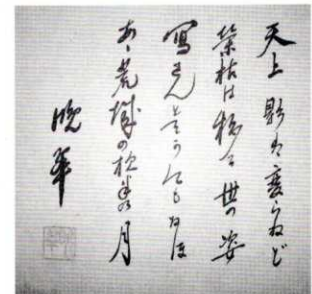 天上影は変らねど
栄枯は移る世の姿
写さんとてか今もなほ
あゝ荒城の夜半の月
晩華